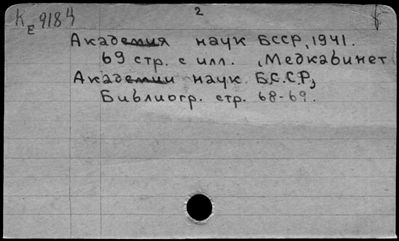 KE 9184
2
Академия наук БССР, 1941.
69 стр. с илл. , Медкабинет
Академии наук Б.С.С.Р,
Библиогр. стр. 68-69.